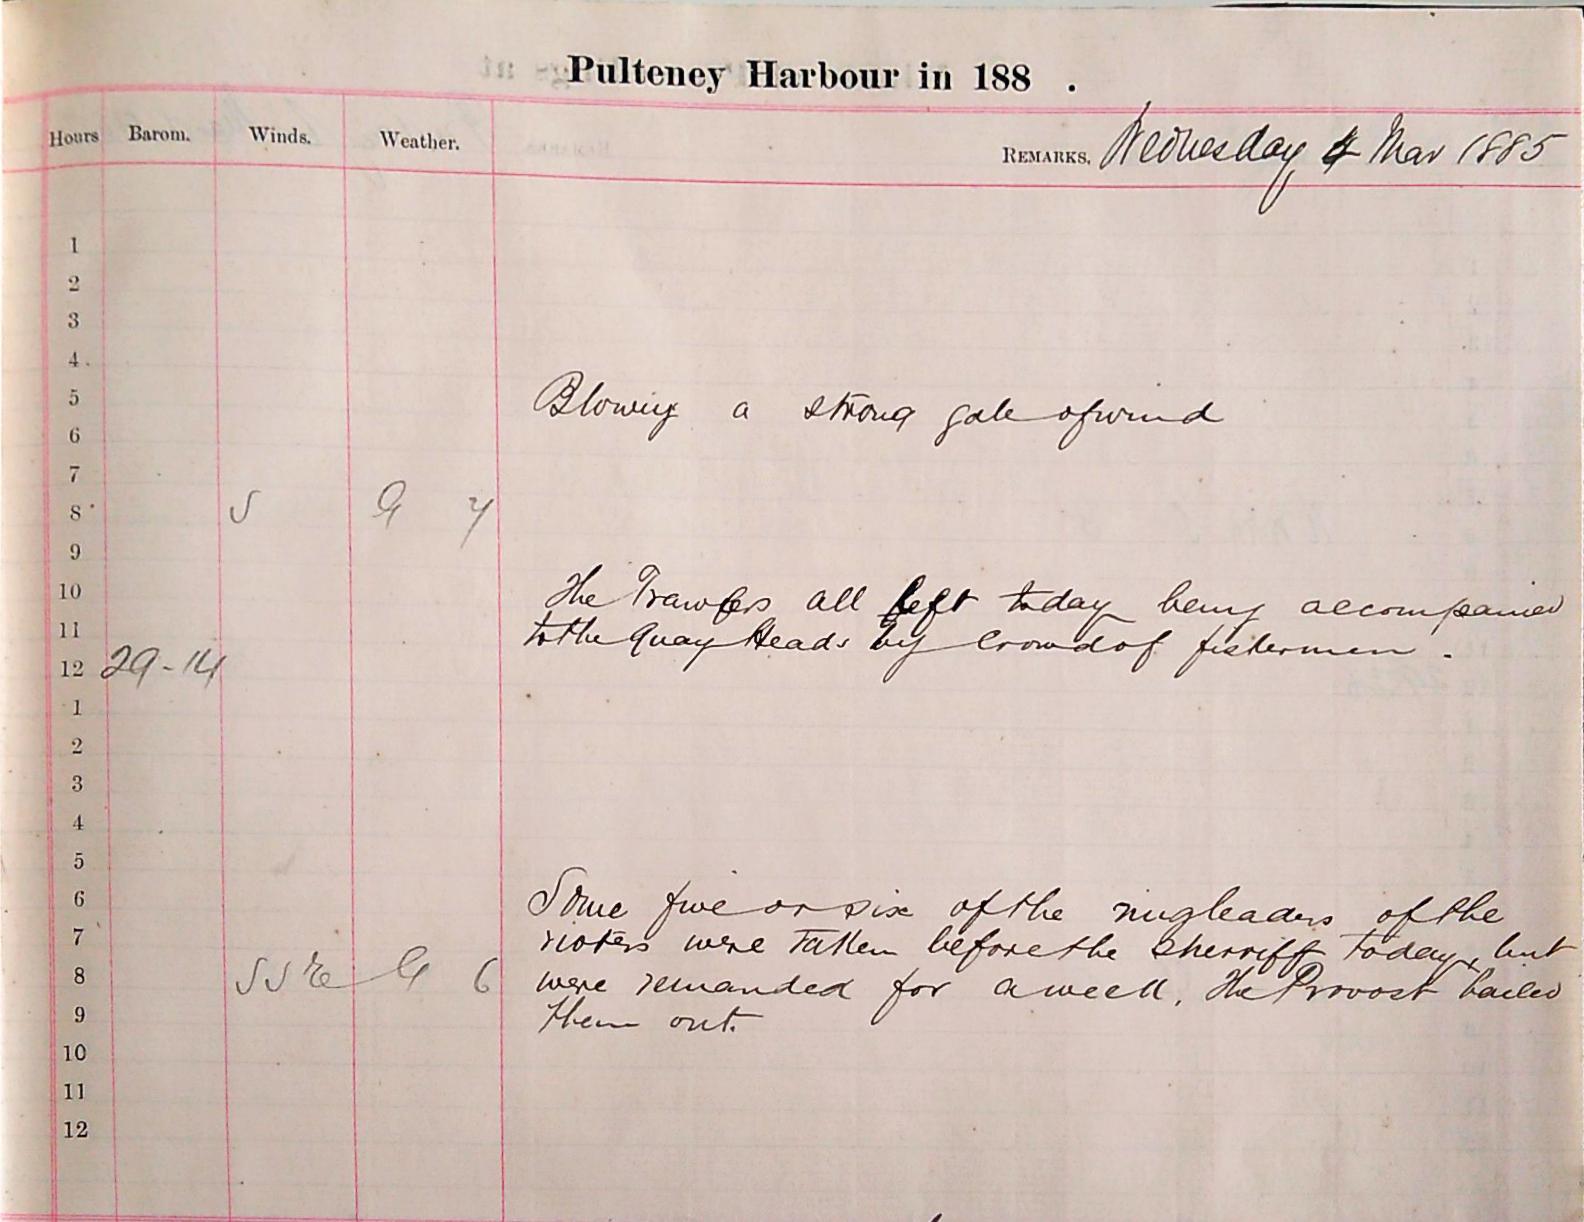 Pulteney Harbour in 188 .
Hours Barom. Winds. Weather. REMARKS. Wednesday 4 Mar 1885
1
2
3
4
5 Blowing a strong gale of wind
6
7
8 S G 7
9
10 The Trawlers all left today being accompanied
11 to the Quay Heads by Crowd of fishermen .
12 29-14
1
2
3
4
5
6 Some five or six of the ringleaders of the
7 rioters were taken before the sherriff today, but
8 SSE G 6 were remanded for a week, The Provost bailed
9 them out.
10
11
12